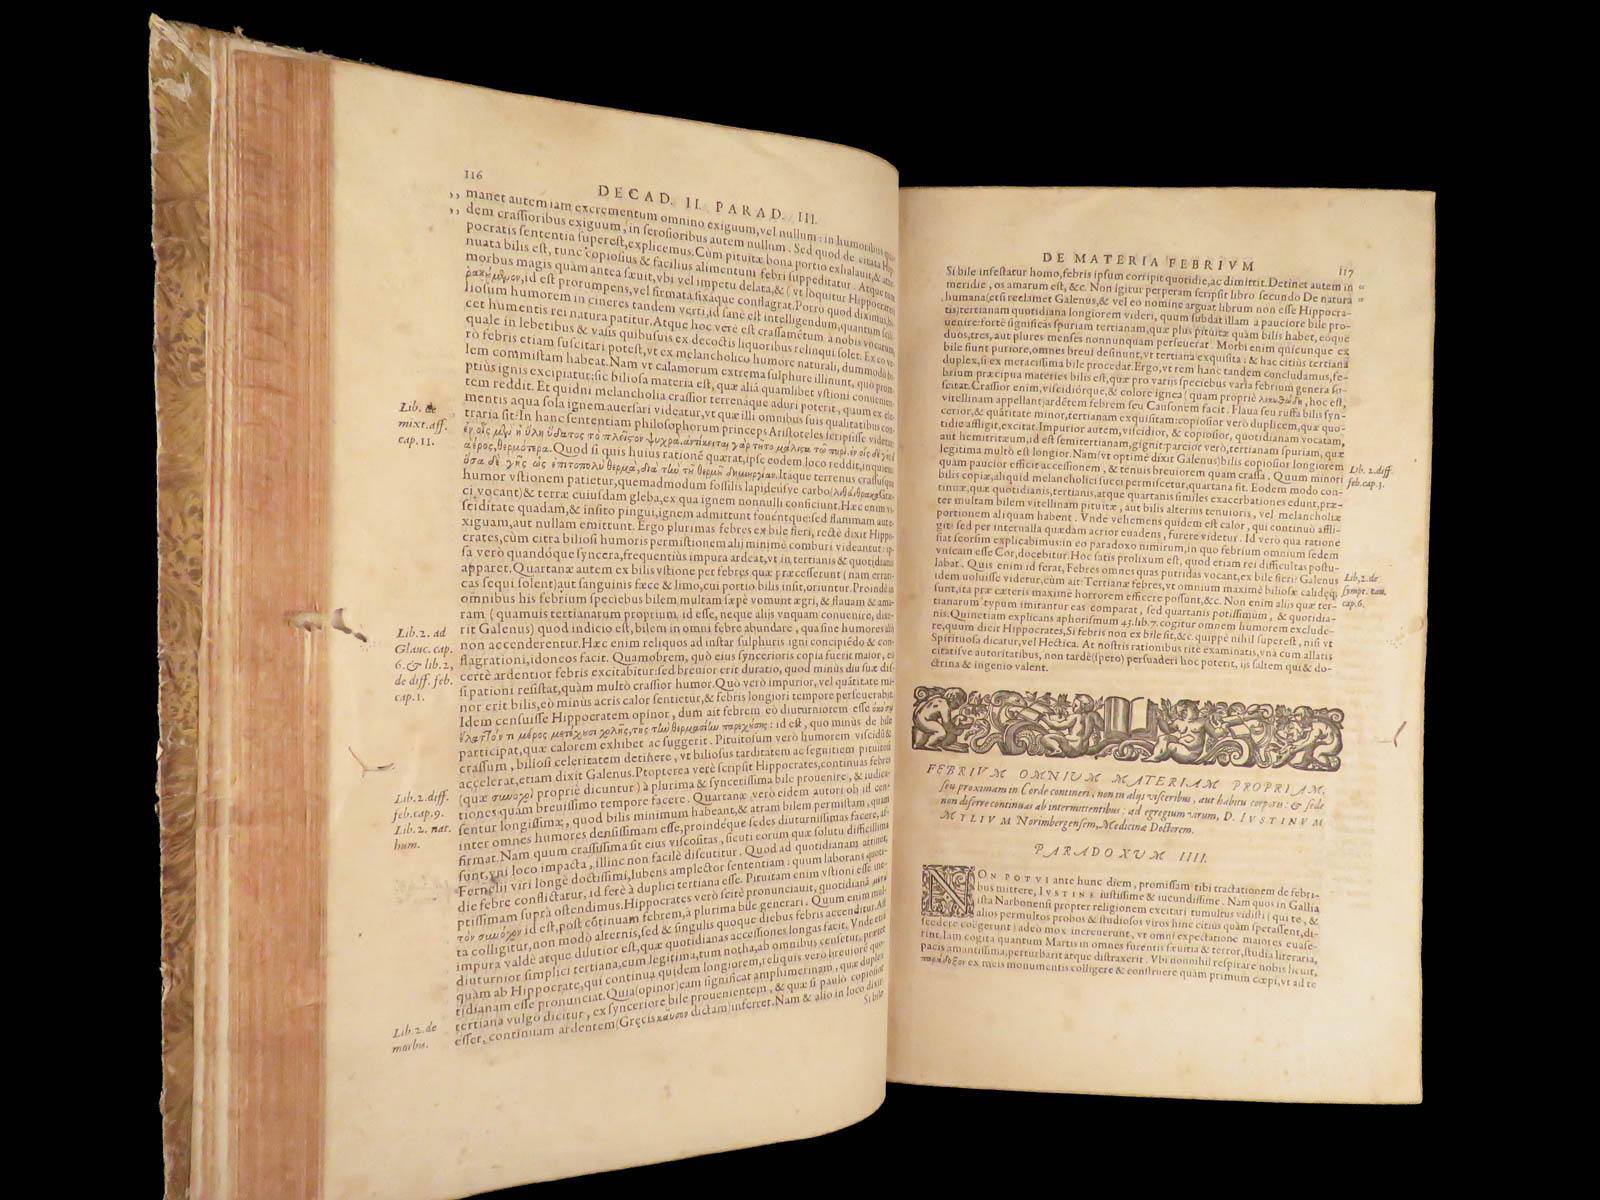 116
DECAD. II. PARAD. III.
,, manet autem iam excrementum omnino exiguum, vel nullum: in humoribus
,, dem crassioribus exiguum, in serosioribus autem nullum. Sed quod de citata Hip
pocratis sententia superest, explicemus. Cùm pituitæ bona portio exhalauit, & atte
nuata bilis est, tunc copiosius & facilius alimentum febri suppeditatur. Atque
morbus magis quàm antea sæuit, vbi vel impetu delata, & (vt loquitur Hippocrates)
id est prorumpens, vel firmata, fixáque conflagrat. Porrò quod diximus, bi
liosum humorem in cineres tandem verti, id sanè est intelligendum, quantum
cet humentis rei natura patitur. Atque hoc verè est crassamétum à nobis vocatum,
quale in lebetibus & vasis quibusuis ex decoctis liquoribus relinqui solet. Ex eo ve
rò febris etiam suscitari potest, vt ex melancholico humore naturali, dummodo bi
lem commistam habeat. Nam vt calamorum extrema sulphure illinunt, quò prom
ptiùs ignis excipiatur: sic biliosa materia est, quæ alia quamlibet vstioni convenien
tem reddit. Et quidni melancholia crassior terrenáque aduri poterit, quum ex ele
mentis aqua sola ignem auersari videatur, vt quæ illi omnibus suis qualitatibus con
traria sit? In hanc sententiam philosophorum princeps Aristoteles scripsisse videtur
ἐν οἷς μὲν ἡ ὕλη ὕδατος τὸ πλεῖστον ψυχρά. ἀντίκειται γὰρ τῆτο μάλιςα τῷ πυρί. ἐν οἷς δὲ γῆς ἢ
ἀέρος, θερμότερα. Quod si quis huius rationē quærat, ipse eodem loco reddit, inquiens
ὅσα δὲ γῆς ὡς ἐπιτοπολὺ θερμά, διὰ τὴν τῇ θερμῇ δημιουργίαν. Itáque terrenus crassúsque
humor vstionem patietur, quemadmodum fossilis lapideúsve carbo (λιθάνθρακα Græ
ci vocant) & terræ cuiusdam gleba, ex qua ignem nonnulli conficiunt. Hæc enim vi
sciditate quadam, & insito pingui, ignem admittunt fouéntque: sed flammam aut e
xiguam, aut nullam emittunt. Ergo plurimas febres ex bile fieri, rectè dixit Hippo
crates, cùm citra biliosi humoris permistionem alij minimè comburi videantur: ip
sa verò quandóque syncera, frequentiùs impura ardeat, vt in tertianis & quotidianis
apparet. Quartanæ autem ex bilis vstione per febres quæ præcesserunt (nam errati
cas sequi solent) aut sanguinis fæce & limo, cui portio bilis insit, oriuntur. Proinde in
omnibus his febrium speciebus bilem multam sæpè vomunt ægri, & flauam & ama
ram (quamuis tertianarum proprium id esse, neque alijs vnquam conuenire, dixe
rit Galenus) quod indicio est, bilem in omni febre abundare, qua sine humores alij
non accenderentur. Hæc enim reliquos ad instar sulphuris igni concipiēdo & con
flagrationi, idoneos facit. Quamobrem, quò eius syncerioris copia fuerit maior, eò
certè ardentior febris excitabitur: sed breuior erit duratio, quod minùs diu suæ dis
sipationi resistat, quàm multò crassior humor. Quò verò impurior, vel quātitate mi
nor erit bilis, eò minùs acris calor sentietur, & febris longiori tempore perseuerabit
Idem censuisse Hippocratem opinor, dum ait febrem eò diuturniorem esse
id est, quo minùs de bile
participat, quæ calorem exhibet ac suggerit. Pituitosum verò humorem viscidū &
crassum, biliosi celeritatem detinere, vt biliosus tarditatem ac segnitiem pituitosi
accelerat, etiam dixit Galenus. Ptopterea verè scripsit Hippocrates, continuas febres
(quæ συνοχοὶ propriè dicuntur) à plurima & syncerissima bile prouenire, & iudica
tiones quàm breuissimo tempore facere. Quartanæ verò eidem autori ob id cen
sentur longissimæ, quod bilis minimum habeant, & atram bilem permistam, quam
inter omnes humores densissimam esse, proindéque sedes diuturnissimas facere, af
firmat. Nam quum crassissima sit eius viscositas, sicuti eorum quæ solutu difficillima
sunt, vni loco impacta, illinc non facilè discutitur. Quod ad quotidianam attinet,
Fernelij viri longè doctissimi, lubens amplector sententiam: quum laborans quoti
die febre conflictatur, id ferè à duplici tertiana esse. Pituitam enim vstioni esse ine
ptissimam suprà ostendimus. Hippocrates verò scitè pronunciauit, quotidianā μετὰ
τὸν σύνοχον id est, post cōtinuam febrem, à plurima bile generari. Quum enim mul
ta colligitur, non modò alternis, sed & singulis quoque diebus febris accenditur. Ast
impura valdè atque dilutior est, quæ quotidianas accessiones longas facit. Vnde erit
diuturnior simplici tertiana, cum legitima, tum notha, ab omnibus censetur, præter
quàm ab Hippocrate, qui continua quidem longiorem, reliquis verò breuiorē quo
tidianam esse pronunciat. Quia (opinor) eam significat amphimerinam, quæ duplex
tertiana vulgò dicitur, ex synceriore bile prouenientem, & quæ si paulò copiosior
esset, continuam ardentem (Gręcis καῦσον dictam) inferret. Nam & alio in loco dixit
Si bile
Lib. de
mixt. aff.
cap. 11.
Lib. 2. ad
Glauc. cap.
6. & lib. 2,
de diff. feb.
cap. 1.
Lib. 2. diff.
feb. cap. 9.
Lib. 2. nat.
hum.
Lib. 2. de
morbis.
DE MATERIA FEBRIVM
117
Si bile infestatur homo, febris ipsum corripit quotidie, ac dimittit. Detinet autem in “
meridie, os amarum est, &c. Non igitur perperam scripsit libro secundo De natura “
humana (etsi reclamet Galenus, & vel eo nomine arguat librum non esse Hippocra-
tis) tertianam quotidiana longiorem videri, quum subdat illam à pauciore bile pro-
uenire: fortè significās spuriam tertianam, quæ plus pituitæ quàm bilis habet, eóque
duos, tres, aut plures menses nonnunquam perseuerat. Morbi enim quicunque ex
bile fiunt puriore, omnes breui desinunt, vt tertiana exquisita: & hac citiùs tertiana
duplex, si ex meracissima bile procedat. Ergo, vt rem hanc tandem concludamus, fe-
brium præcipua materies bilis est, quæ pro varijs speciebus varia febrium genera su-
scitat. Crassior enim, viscidiórque, & colore ignea (quam propriè λεκιθώδη, hoc est,
vitellinam appellant) ardētem febrem seu Causonem facit. Flaua seu ruffa bilis syn-
cerior, & quātitate minor, tertianam exquisitam: copiosior verò duplicem, quæ quo-
tidie affligit, excitat. Impurior autem, viscidior, & copiosior, quotidianam vocatam,
aut hemitritæum, id est semitertianam, gignit: parcior verò, tertianam spuriam, quæ
legitima multò est longior. Nam (vt optimè dixit Galenus) bilis copiosior longiorem
quàm paucior efficit accessionem, & tenuis breuiorem quàm crassa. Quum minori
bilis copiæ, aliquid melancholici succi permiscetur, quartana fit. Eodem modo con-
tinuæ, quæ quotidianis, tertianis, atque quartanis similes exacerbationes edunt, præ-
ter multam bilem vitellinam pituitæ, aut bilis alterius tenuioris, vel melancholiæ
portionem aliquam habent. Vnde vehemens quidem est calor, qui continuò affli-
git: sed per interualla quædam acrior euadens, furere videtur. Id verò qua ratione
fiat seorsim explicabimus: in eo paradoxo nimirum, in quo febrium omnium sedem
vnicam esse Cor, docebitur. Hoc satis prolixum est, quod etiam rei difficultas postu-
labat. Quis enim id ferat, Febres omnes quas putridas vocant, ex bile fieri? Galenus
idem voluisse videtur, cùm ait: Tertianæ febres, vt omnium maximè biliosæ calidéq;
sunt, ita præ cæteris maximè horrorem efficere possunt, &c. Non enim alijs quæ ter-
tianarum typum imitantur eas comparat, sed quartanis potissimum, & quotidia-
nis. Quinetiam explicans aphorismum 43. lib. 7. cogitur omnem humorem exclude-
re, quum dicit Hippocrates, Si febris non ex bile sit, &c. quippe nihil superest, nisi vt
Spirituosa dicatur, vel Hectica. At nostris rationibus ritè examinatis, vnà cum allatis
citatísve autoritatibus, non tardè (spero) persuaderi hoc poterit, ijs saltem qui & do-
ctrina & ingenio valent.
Lib. 2. diff.
feb. cap. 3.
Lib. 2. de
sympt. cau.
cap. 6.
FEBRIVM OMNIVM MATERIAM PROPRIAM,
seu proximam in Corde contineri, non in alijs visceribus, aut habitu corporis: & sede
non differre continuas ab intermittentibus: ad egregium virum, D. IVSTINVM
MYLIVM Norimbergensem, Medicinæ Doctorem.
PARADOXVM IIII.
NON POTVI ante hunc diem, promissam tibi tractationem de febri-
bus mittere, IVSTINE iustissime & iucundissime. Nam quos in Gallia
ista Narbonensi propter religionem excitari tumultus vidisti (qui te, &
alios permultos probos & studiosos viros hinc citiùs quàm sperassent, di-
scedere coëgerunt) adeò mox increuerunt, vt omni expectatione maiores euase-
rint. Iam cogita quantum Martis in omnes furentis sæuitia & terror, studia literaria,
pacis amantissima, perturbarit atque distraxerit. Vbi nonnihil respirare nobis licuit,
παράδοξον ex meis monumentis colligere & construere quàm primùm cœpi, vt ad te